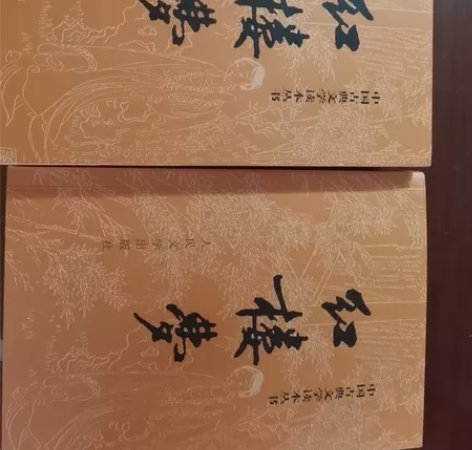 红楼梦
中国古典文学读本丛书
人民文学出版社
红楼梦
中国古典文学读本丛书